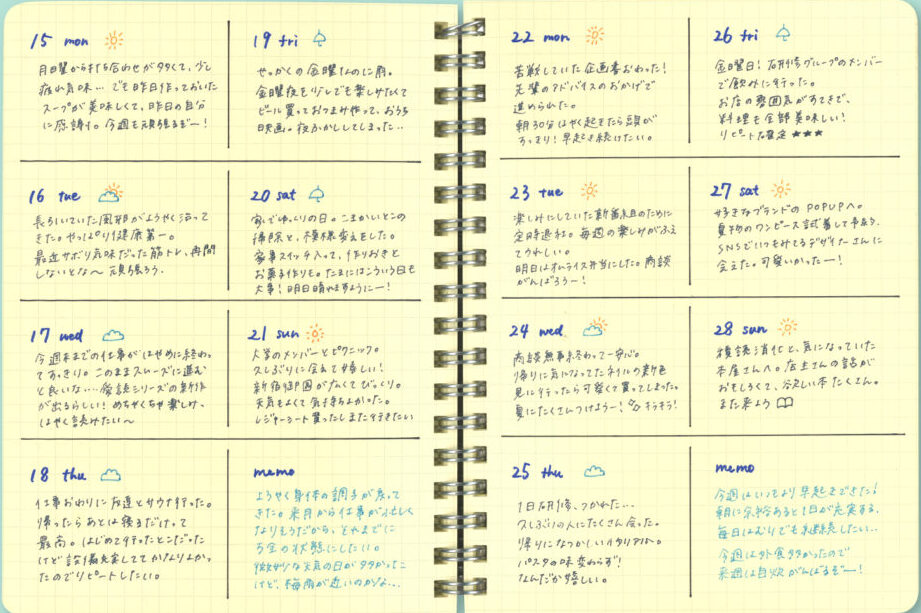 15 mon
月曜から打ち合わせが多くて、少し
疲れ気味… でも昨日作っておいた
スープが美味しくて、昨日の自分
に感謝！。今週も頑張るぞー！
16 tue
長らいていた風邪がようやく治って
きた。やっぱり健康第一。
最近サボり気味だった筋トレ、再開
しないとな〜 頑張ろう。
17 wed
今週末までの仕事がはやめに終わっ
てすっきり。このままスムーズに進む
と良いな…。愛読シリーズの新作
が出るらしい！めちゃくちゃ楽しみ、
はやく読みたい〜
18 thu
仕事おわりに友達とサウナ行った。
帰ったらあとは寝るだけって
最高。はじめて行ったとこだった
けど設備充実しててかなりよかっ
たのでリピートしたい。
19 fri
せっかくの金曜なのに雨。
金曜夜を少しでも楽しみたくて
ビール買っておつまみ作って、おうち
映画。夜ふかししてしまった…
20 sat
家でゆっくりの日。こまかいとこの
掃除と、模様変えをした。
家事スイッチ入って、作りおきと
お菓子作りも。たまにはこういう日も
大事！明日晴れますようにー！
21 sun
大学のメンバーとピクニック。
久しぶりに会えて嬉しい！
新宿御苑が広くてびっくり。
天気もよくて気持ちよかった。
レジャーシート買ったしまた行きたい
memo
ようやく身体の調子が戻って
きた。来月から仕事が忙しく
なりそうだから、それまでに
万全の状態にしたい。
微妙な天気の日が多かったこ
けど、梅雨が近いのかな…
22 mon
苦戦していた企画書おわった！
先輩のアドバイスのおかげで
進められた。
朝30分はやく起きたら頭が
すっきり！早起き続けたい。
23 tue
楽しみにしていた新番組のために
定時退社。毎週の楽しみがふえ
てうれしい。
明日はオムライス弁当にした。商談
がんばろう〜！
24 wed
商談無事終わって一安心。
帰りに気になってたネイルの新色
見に行ったら可愛くて買ってしまった。
夏にたくさんつけよう〜！キラキラ！
25 thu
1日研修、つかれた…
久しぶりの人にたくさん会った。
帰りになつかしいイタリアンへ。
パスタの味変わらず！
なんだか嬉しい。
26 fri
金曜日！研修グループのメンバー
で飲みに行った。
お店の雰囲気がすてきで、
料理も全部美味しい！
リピート確定 ★★★
27 sat
好きなブランドのPOPUPへ。
夏物のワンピース試着して予約、
SNSでいつもみてるデザイナーさんに
会えた。可愛いかったー！
28 sun
積読消化と、気になっていた
本屋さんへ。店主さんの話が
おもしろくて、欲しい本たくさん。
また来よう
memo
今週はいつもより早起きできた！
朝に余裕あると1日が充実する、
毎日はむりでも継続したい…
今週は外食多かったので
来週は自炊がんばるぞー！